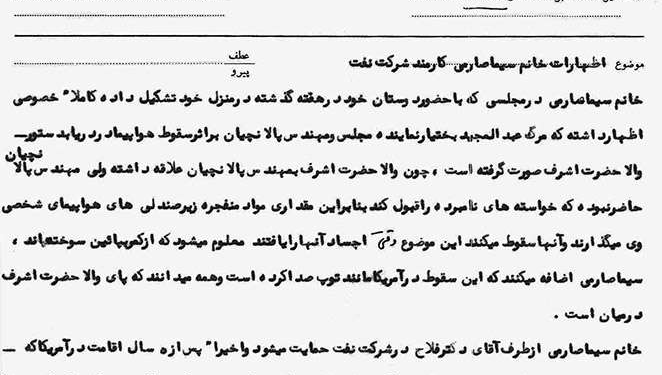 موضوع اظهارات خانم سیما صارمی کارمند شرکت نفت
عطف
پیرو
خانم سیما صارمی در مجلسی که با حضور دوستان خود در هفته گذشته در منزل خود تشکیل داده کاملا" خصوصی
اظهار داشته که مرگ عبد المجید بختیار نماینده مجلس و مهند س پالا نچیان بر اثر سقوط هواپیما در دریا بد ستور
والا حضرت اشرف صورت گرفته است ، چون والا حضرت اشرف بمهند س پالا نچیان علاقه داشته ولی مهند س پالا نچیان
حاضر نبوده که خواسته های نامبرده را قبول کند بنابر این مقداری مواد منفجره زیر صندلی های هواپیمای شخصی
وی میگذارند و آنها سقوط میکنند این موضوع وقتی اجساد آنها را یافتند معلوم میشود که از کمر بپائین سوخته اند ،
سیما صارمی اضافه میکنند که این سقوط در آمریکا مانند توپ صدا کرده است و همه میدانند که پای والا حضرت اشرف
در میان است .
خانم سیما صارمی از طرف آقای دکتر فلاح در شرکت نفت حمایت میشود و اخیرا" پس از ده سال اقامت در آمریکا که